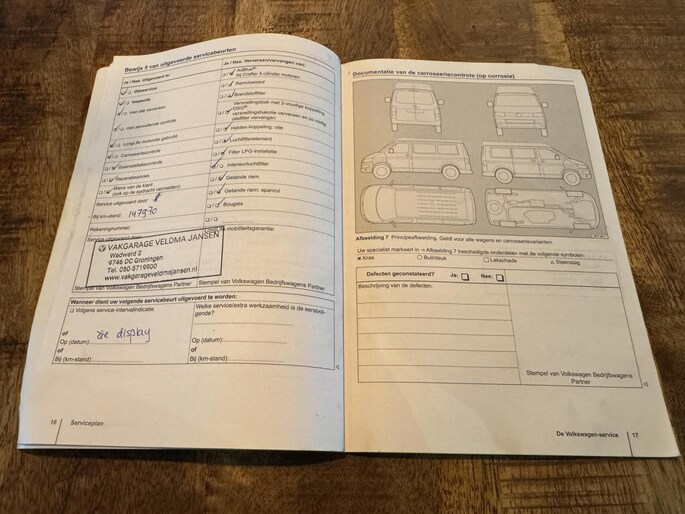 Bewijs 5 van uitgevoerde servicebeurten
Ja / Nee, Uitgevoerd is:
Olieservice
Inspectie
met olie verversen
met aanvullende controle
LongLife motorolie gebruikt
Carrosseriecontrole
Gasinstallatiecontrole
Reparatieadvies
Wens van de klant
(ook op de opdracht vermelden)
Service uitgevoerd door:
Bij km-stand: 147970
Rekeningnummer:
Service uitgevoerd door:
VAKGARAGE VELDMA JANSEN
Wadwerd 2
9746 DC Groningen
Tel. 050-5719900
www.vakgarageveldmajansen.nl
Stempel van Volkswagen Bedrijfswagens Partner
Ja / Nee, Verversen/vervangen van:
AdBlue®
bij Crafter 5-cilinder motoren
Remvloeistof
Brandstoffilter
Versnellingsbak met 2-voudige koppeling
DSG®:
versnellingsbakolie verversen en zo nodig
oliefilter vervangen
Haldex-koppeling: olie
Luchtfilterelement
Filter LPG-installatie
Interieurluchtfilter
Getande riem
Getande riem: spanrol
Bougies
mobiliteitsgarantie:
Stempel van Volkswagen Bedrijfswagens Partner
Wanneer dient uw volgende servicebeurt uitgevoerd te worden:
Volgens service-intervalindicatie
of
zie display
Op (datum):
of
Bij (km-stand):
Welke service/extra werkzaamheid is de eerstvol-
gende?
Op (datum):
of
Bij (km-stand):
16 Serviceplan
Documentatie van de carrosseriecontrole (op corrosie)
Afbeelding 7 Principeafbeelding. Geldt voor alle wagens en carrosserievarianten.
Uw specialist markeert in ⇒ Afbeelding 7 beschadigde onderdelen met de volgende symbolen:
× Kras ○ Buil/deuk □ Lakschade △ Steenslag
Defecten geconstateerd? Ja: Nee:
Beschrijving van de defecten:
Stempel van Volkswagen Bedrijfswagens
Partner
De Volkswagen-service 17